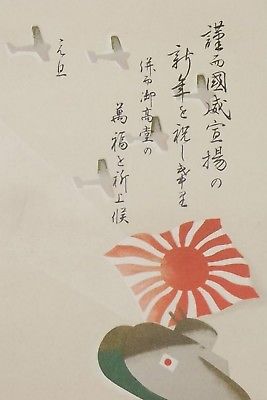 謹而國威宣揚の
新年を祝し奉里
併而御高堂の
萬福を祈上候
元旦